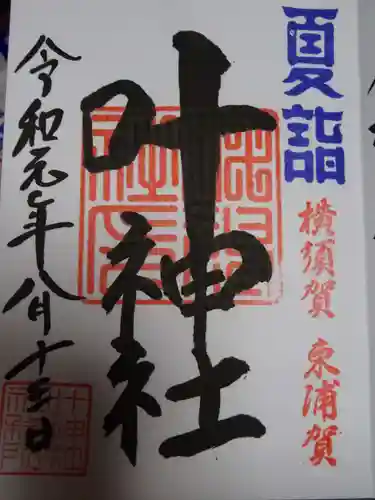 夏詣
横須賀 東浦賀
叶神社
令和元年八月十三日